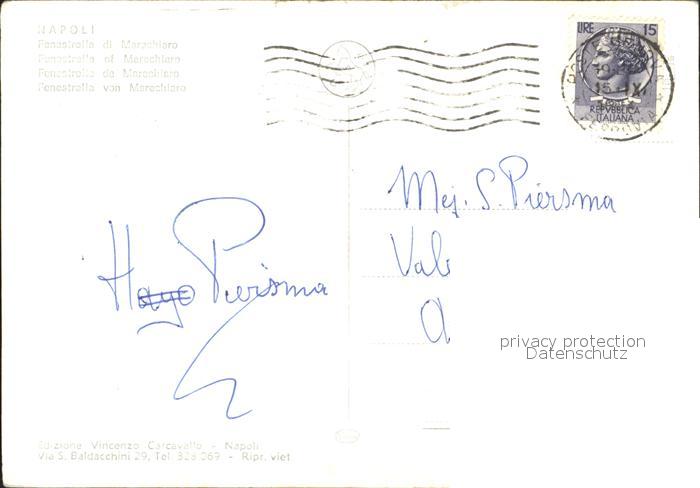 NAPOLI
Fenestrella di Marechiaro
Fenestrella of Marechiaro
Fenestrella de Marechiaro
Fenestrella von Marechiaro
LIRE 15
REPVBBLICA
ITALIANA
Mej. S. Piersma
Val
Hayo Piersma
A
privacy protection
Datenschutz
Edizione Vincenzo Carcavallo - Napoli
Via S. Baldacchini 29, Tel. 328 069 - Ripr. viet.